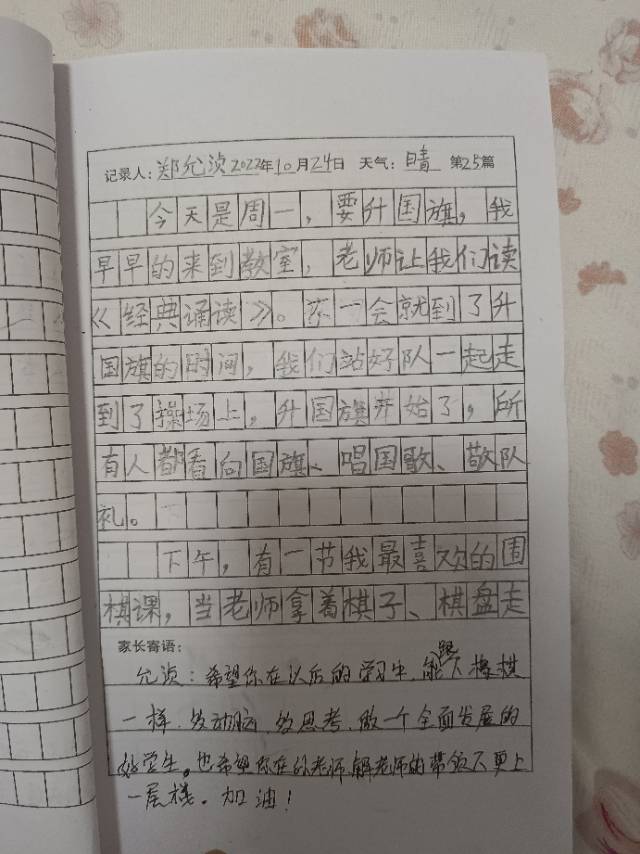 记录人：郑允浈 2022年10月24日 天气：晴 第25篇
今天是周一，要升国旗，我
早早的来到教室，老师让我们读
《经典诵读》。不一会就到了升
国旗的时间，我们站好队一起走
到了操场上，升国旗开始了，所
有人都看向国旗、唱国歌、敬队
礼。
下午，有一节我最喜欢的围
棋课，当老师拿着棋子、棋盘走
家长寄语：
允浈：希望你在以后的学习中，能跟下象棋
一样，多动脑，多思考，做一个全面发展的
好学生。也希望你在孙老师、解老师的带领下更上
一层楼。加油！